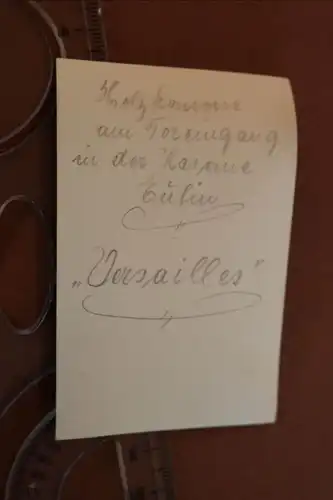 Holzkanone
am Toreingang
in der Kaserne
Eutin
„Versailles"